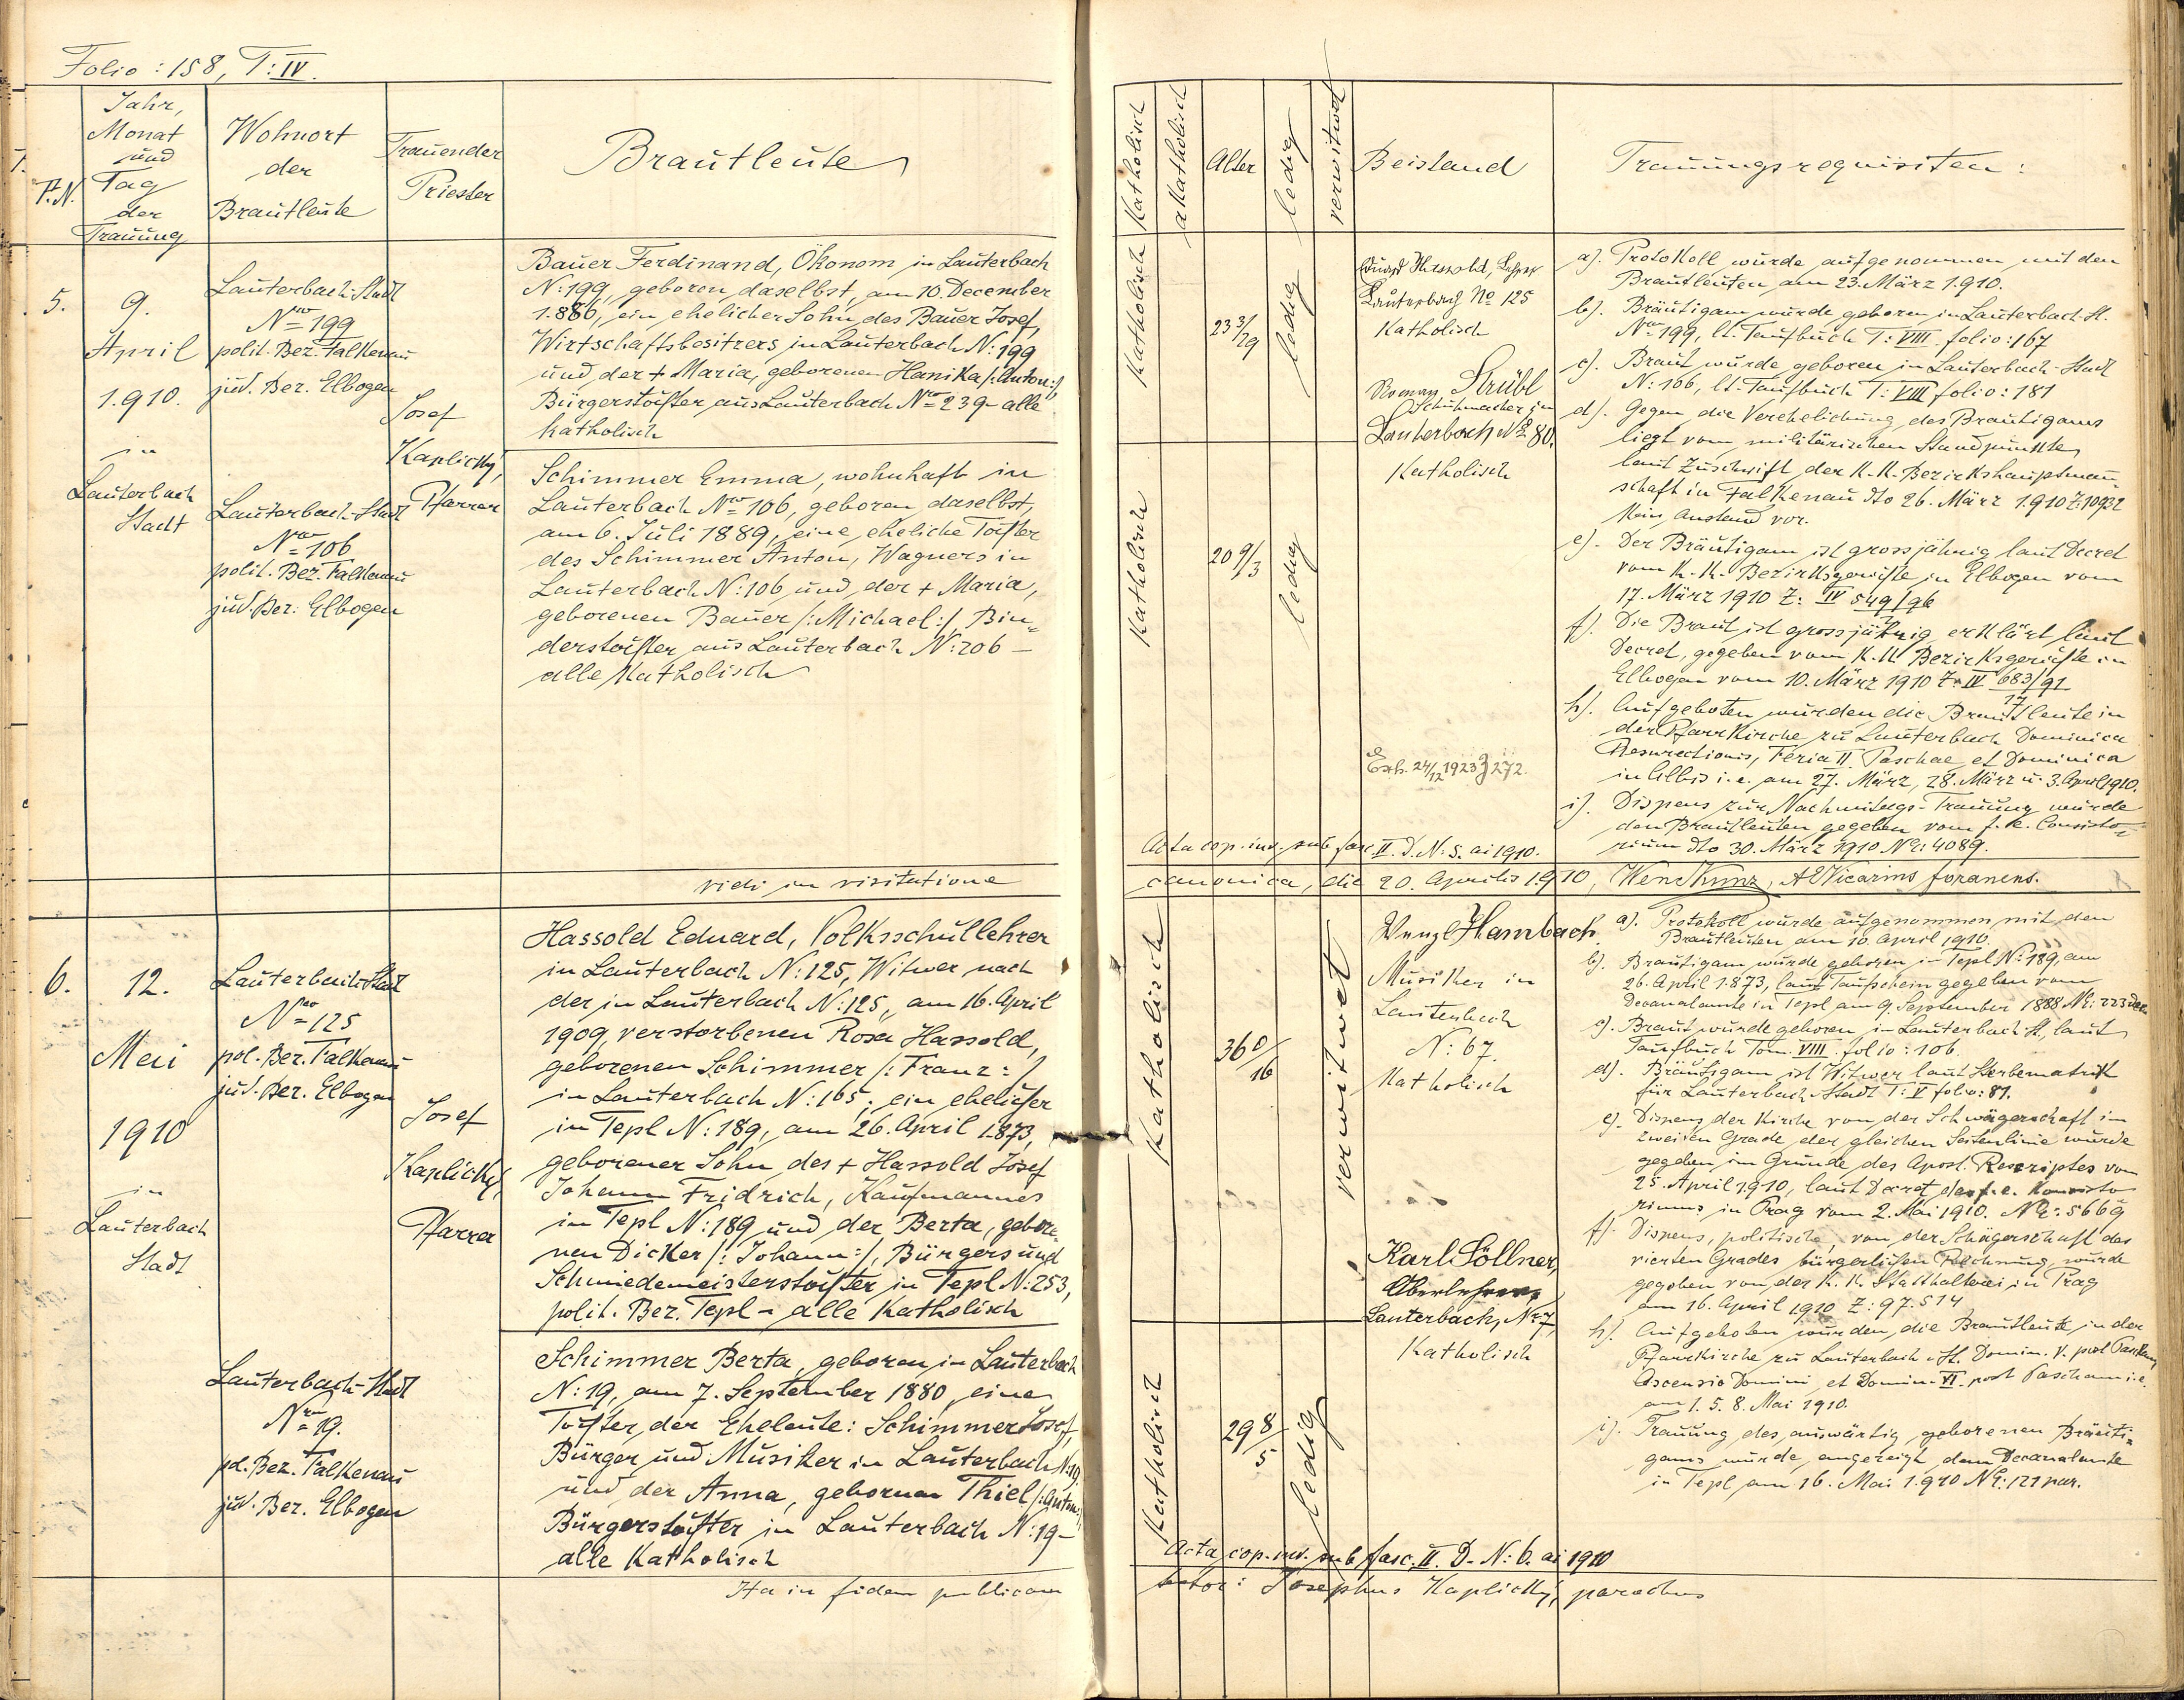 Folio: 158, T: IV.
P.N.
Jahr,
Monat
und
Tag
der
Trauung
Wohnort
der
Brautleute
Trauender
Priester
Brautleute
5.
9.
April
1.910.
in
Lauterbach
Stadt
Lauterbach-Stadt
Nro 199
polit. Bez. Falkenau
jud. Bez. Elbogen
Lauterbach-Stadt
Nro 106
polit. Bez. Falkenau
jud. Bez: Elbogen
Josef
Kaplický,
Pfarrer
Bauer Ferdinand, Ökonom in Lauterbach
N: 199, geboren daselbst, am 10. December
1.886, ein ehelicher Sohn des Bauer Josef,
Wirtschaftsbesitzers in Lauterbach N: 199
und der + Maria, geborenen Hanika /: Anton :/
Bürgerstochter aus Lauterbach Nro 239 - alle
katholisch
Schimmer Emma, wohnhaft in
Lauterbach Nro 106, geboren daselbst,
am 6. Juli 1889, eine eheliche Tochter
des Schimmer Anton, Wagners in
Lauterbach N: 106 und der + Maria,
geborenen Bauer /: Michael :/ Bin=
derstochter aus Lauterbach N: 206 -
alle katholisch
vidi in visitatione
6.
12.
Mai
1910
in
Lauterbach
Stadt
Lauterbach-Stadt
Nro 125
pol. Bez. Falkenau
jud. Bez. Elbogen
Lauterbach-Stadt
Nro 19.
pol. Bez. Falkenau
jud. Bez. Elbogen
Josef
Kaplický,
Pfarrer
Hassold Eduard, Volksschullehrer
in Lauterbach N: 125, Witwer nach
der in Lauterbach N: 125, am 16. April
1909, verstorbenen Rosa Hassold,
geborenen Schimmer /: Franz :/
in Lauterbach N: 165; ein ehelicher
in Tepl N: 189, am 26. April 1.873,
geborener Sohn des + Hassold Josef
Johann Fridrich, Kaufmannes
in Tepl N: 189 und der Berta, gebore=
nen Dicker /: Johann :/, Bürgers und
Schmiedemeisterstochter in Tepl N: 253,
polit. Bez. Tepl - alle katholisch
Schimmer Berta, geboren in Lauterbach
N: 19, am 7. September 1880, eine
Tochter der Eheleute: Schimmer Josef,
Bürger und Musiker in Lauterbach N: 19
und der Anna, geborner Thiel /: Anton :/
Bürgerstochter in Lauterbach N: 19 -
alle katholisch
Ita in fidem publicam
Katholisch
akatholisch
Alter
ledig
verwitwet
Beistand
Trauungsrequisiten:
katholisch
23 3/29
ledig
katholisch
20 9/3
ledig
Eduard Hassold, Lehrer
Lauterbach No 125
Katholisch
Roman Strübl
Schuhmacher in
Lauterbach No 80.
Katholisch
Exh. 24/12 1923 Z 272.
a). Protokoll wurde aufgenommen mit den
Brautleuten am 23. März 1.910.
b). Bräutigam wurde geboren in Lauterbach-St.
Nro 199, lt. Taufbuch T: VIII folio: 167
c). Braut wurde geboren in Lauterbach-Stadt
N: 106, lt. Taufbuch T: VIII folio: 181
d). Gegen die Verehelichung des Bräutigams
liegt vom militärischen Standpunkte
laut Zuschrift der k. k. Bezirkshauptmann
schaft in Falkenau dto 26. März 1.910 Z: 10932
kein Anstand vor.
e). Der Bräutigam ist grossjährig laut Decret
vom k. k. Bezirksgerichte in Elbogen vom
17. März 1910 Z: IV 549/96
f). Die Braut ist grossjährig erklärt laut
Decret, gegeben vom k. k. Bezirksgerichte in
Elbogen vom 10. März 1910 Z: IV 683/91
17
h). Aufgeboten wurden die Brautleute in
der Pfarrkirche zu Lauterbach Dominica
Resurectionis, Feria II Paschae et Dominica
in Albis i. e. am 27. März, 28. März u. 3. April 1910.
i). Dispens zur Nachmittags-Trauung wurde
den Brautleuten gegeben vom f. e. Consisto=
rium dto 30. März 1910 No: 4089.
Acta cop. inv. sub fasc. II. D. N: 5. ai 1910.
canonica, die 20. Aprilis 1.910, Wenc Kunz, A Vicarius foraneus.
katholisch
36 0/16
verwitwet
katholisch
29 8/5
ledig
Wenzl Hambach
Musiker in
Lauterbach
N: 67.
Katholisch
Karl Söllner,
Oberlehrer
Lauterbach, No 7,
Katholisch
a). Protokoll wurde aufgenommen mit den
Brautleuten am 10. April 1910.
b). Bräutigam wurde geboren in Tepl N: 189, am
26. April 1.873, laut Taufschein gegeben vom
Decanalamte in Tepl am 9. September 1888 No: 223 Dec.
c). Braut wurde geboren in Lauterbach-St, laut
Taufbuch Tom. VIII folio: 106.
d). Bräutigam ist Witwer laut Sterbematrik
für Lauterbach-Stadt T: V folio: 81.
e). Dispens der Kirche von der Schwägerschaft im
zweiten Grade der gleichen Seitenlinie wurde
gegeben im Grunde des Apost. Rescriptes vom
25. April 1.910, laut Decret des f. e. Konsisto
riums in Prag vom 2. Mai 1910. No: 5669
f). Dispens, politische, von der Schägerschaft des
vierten Grades bürgerlichen Rechnung, wurde
gegeben von der k. k. Statthalterei in Prag
am 16. April 1.910 Z: 97.514
h). Aufgeboten wurden die Brautleute in der
Pfarrkirche zu Lauterbach-St. Domin. V. post Pascham,
Ascensio Domini et Domin. VI. post Pascham i. e.
am 1. 5. 8. Mai 1910.
i). Trauung des auswärtig geborenen Bräuti=
gams wurde angezeigt dem Decanalamte
in Tepl am 16. Mai 1.910 No: 121 par.
Acta cop. inv. sub fasc. II. D. N: 6. ai 1910
Josephus Kaplický, parochus